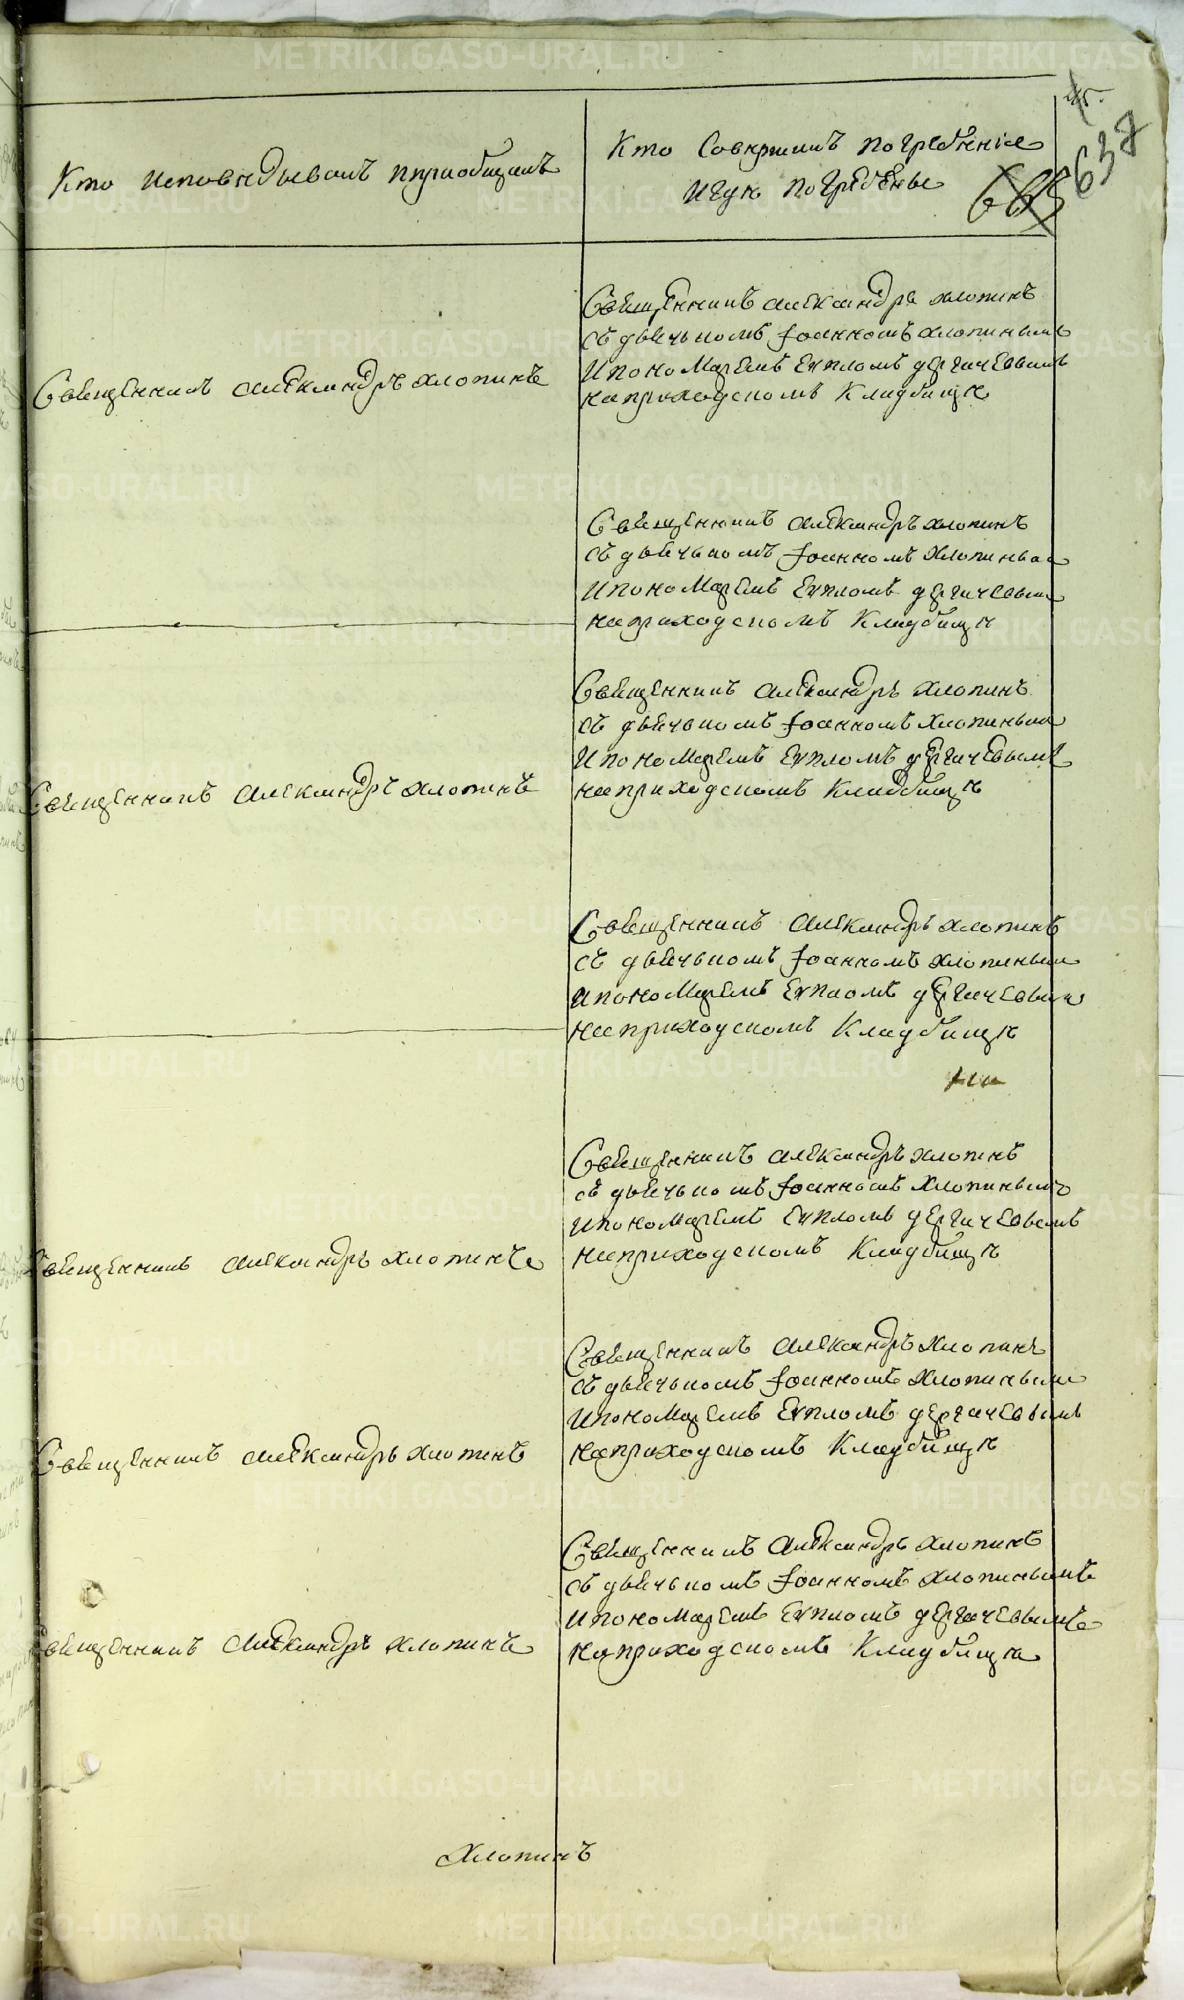 Кто исповѣдывалъ и приобщалъ
Кто Совершилъ погребѣніе
и гдѣ погребены
665
638
Священникъ Александръ Хлопинъ
Священникъ Александръ Хлопинъ
съ дьячькомъ Іоанномъ Хлопинымъ
и пономаремъ Еѵпломъ Дергачевымъ
на приходскомъ Кладбищѣ
Священникъ Александръ Хлопинъ
съ дьячькомъ Іоанномъ Хлопинымъ
и пономаремъ Еѵпломъ Дергачевымъ
на приходскомъ Кладбищѣ
Священникъ Александръ Хлопинъ
Священникъ Александръ Хлопинъ
съ дьячькомъ Іоанномъ Хлопинымъ
и пономаремъ Еѵпломъ Дергачевымъ
на приходскомъ Кладбищѣ
Священникъ Александръ Хлопинъ
съ дьячькомъ Іоанномъ Хлопинымъ
и пономаремъ Еѵпломъ Дергачевымъ
на приходскомъ Кладбищѣ
Священникъ Александръ Хлопинъ
Священникъ Александръ Хлопинъ
съ дьячькомъ Іоанномъ Хлопинымъ
и пономаремъ Еѵпломъ Дергачевымъ
на приходскомъ Кладбищѣ
Священникъ Александръ Хлопинъ
Священникъ Александръ Хлопинъ
съ дьячькомъ Іоанномъ Хлопинымъ
и пономаремъ Еѵпломъ Дергачевымъ
на приходскомъ Кладбищѣ
Священникъ Александръ Хлопинъ
Священникъ Александръ Хлопинъ
съ дьячькомъ Іоанномъ Хлопинымъ
и пономаремъ Еѵпломъ Дергачевымъ
на приходскомъ Кладбищѣ
Хлопинъ
METRIKI.GASO-URAL.RU